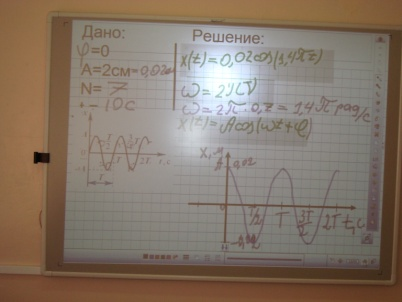 Дано:
φ=0
A=2см=0,02м
N= 7
10с
Решение:
x(t)=0,02cos(1,4πt)
ω=2πν
ω=2π·0,7=1,4π рад/с
x(t)=Acos(ωt+φ)
x, м
0,02
0
-0,02
T/2
T
3T/2
2T
t, с